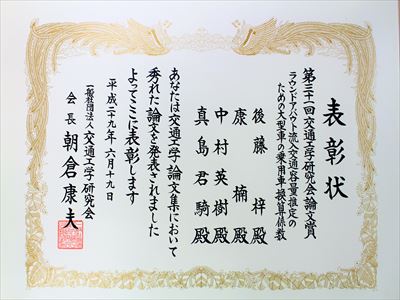 表彰状
第三十一回交通工学研究会論文賞
ラウンドアバウト流入交通容量推定の
ための大型車の乗用車換算係数
後藤 梓殿
康 楠殿
中村英樹殿
真島君騎殿
あなたは「交通工学」論文集において
秀れた論文を発表されました
よってここに表彰します
平成二十九年六月十九日
一般社団法人交通工学研究会
会長 朝倉康夫